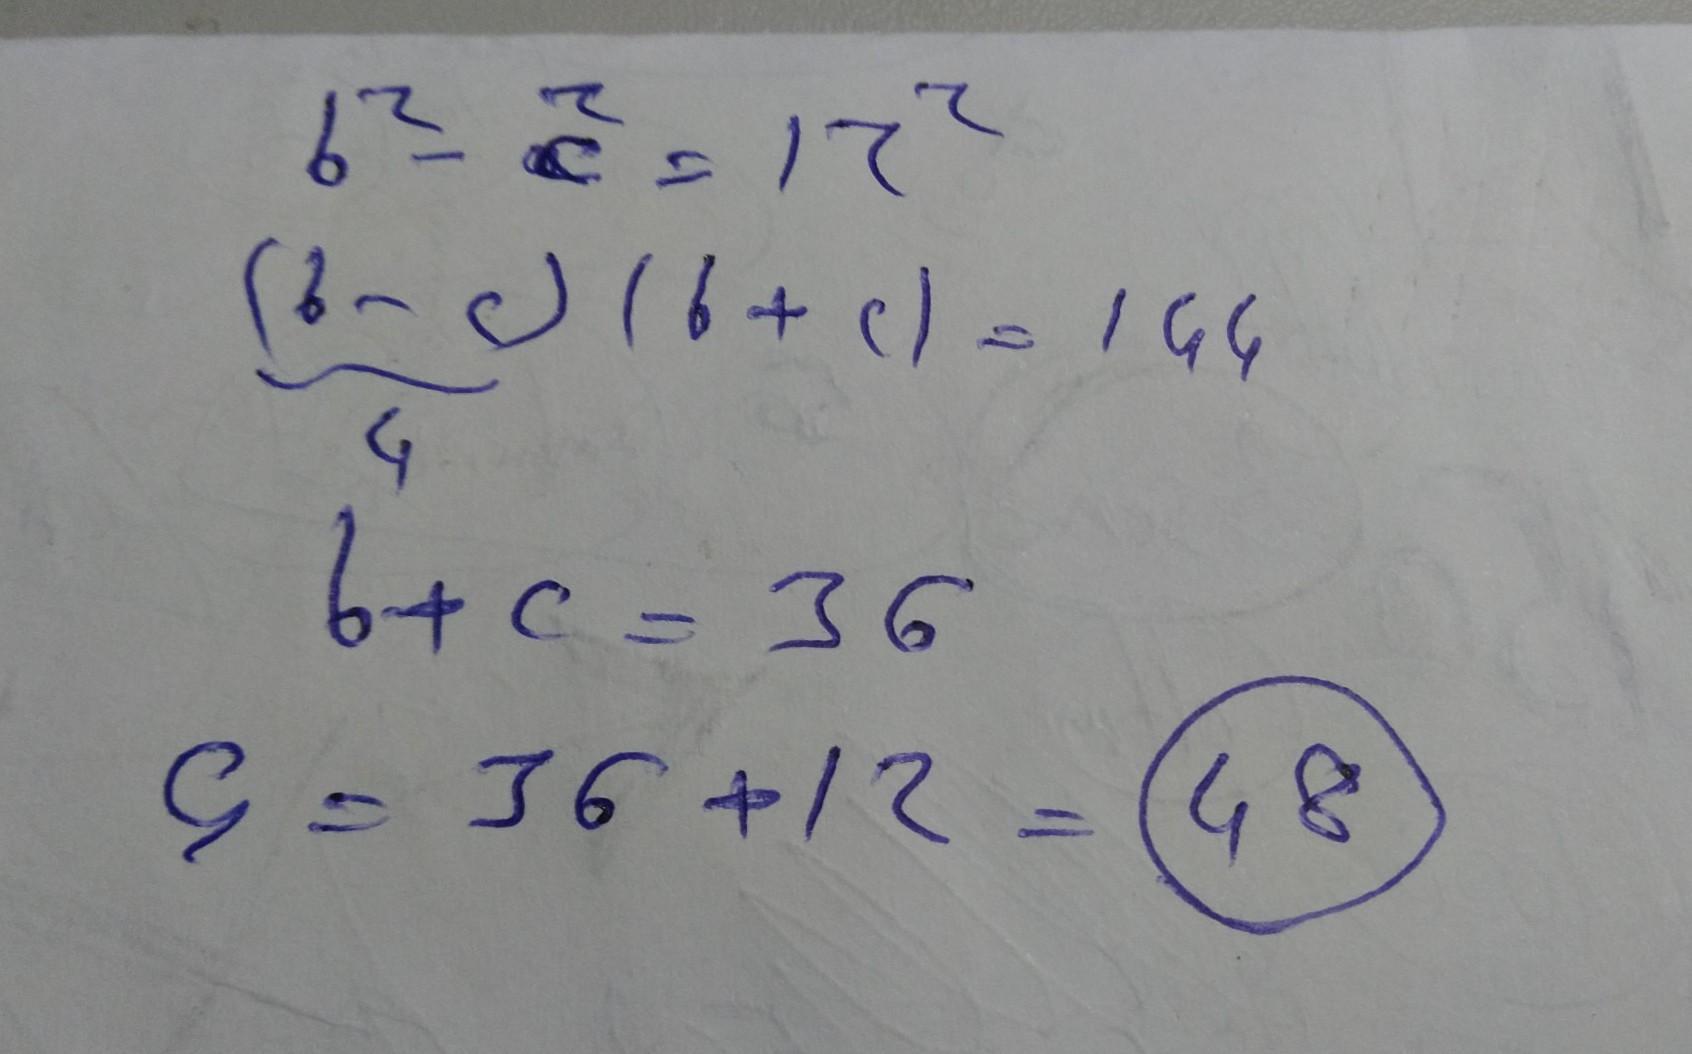 b² - c² = 12²
(b - c) (b + c) = 144
4
b + c = 36
Ç = 36 + 12 = 48